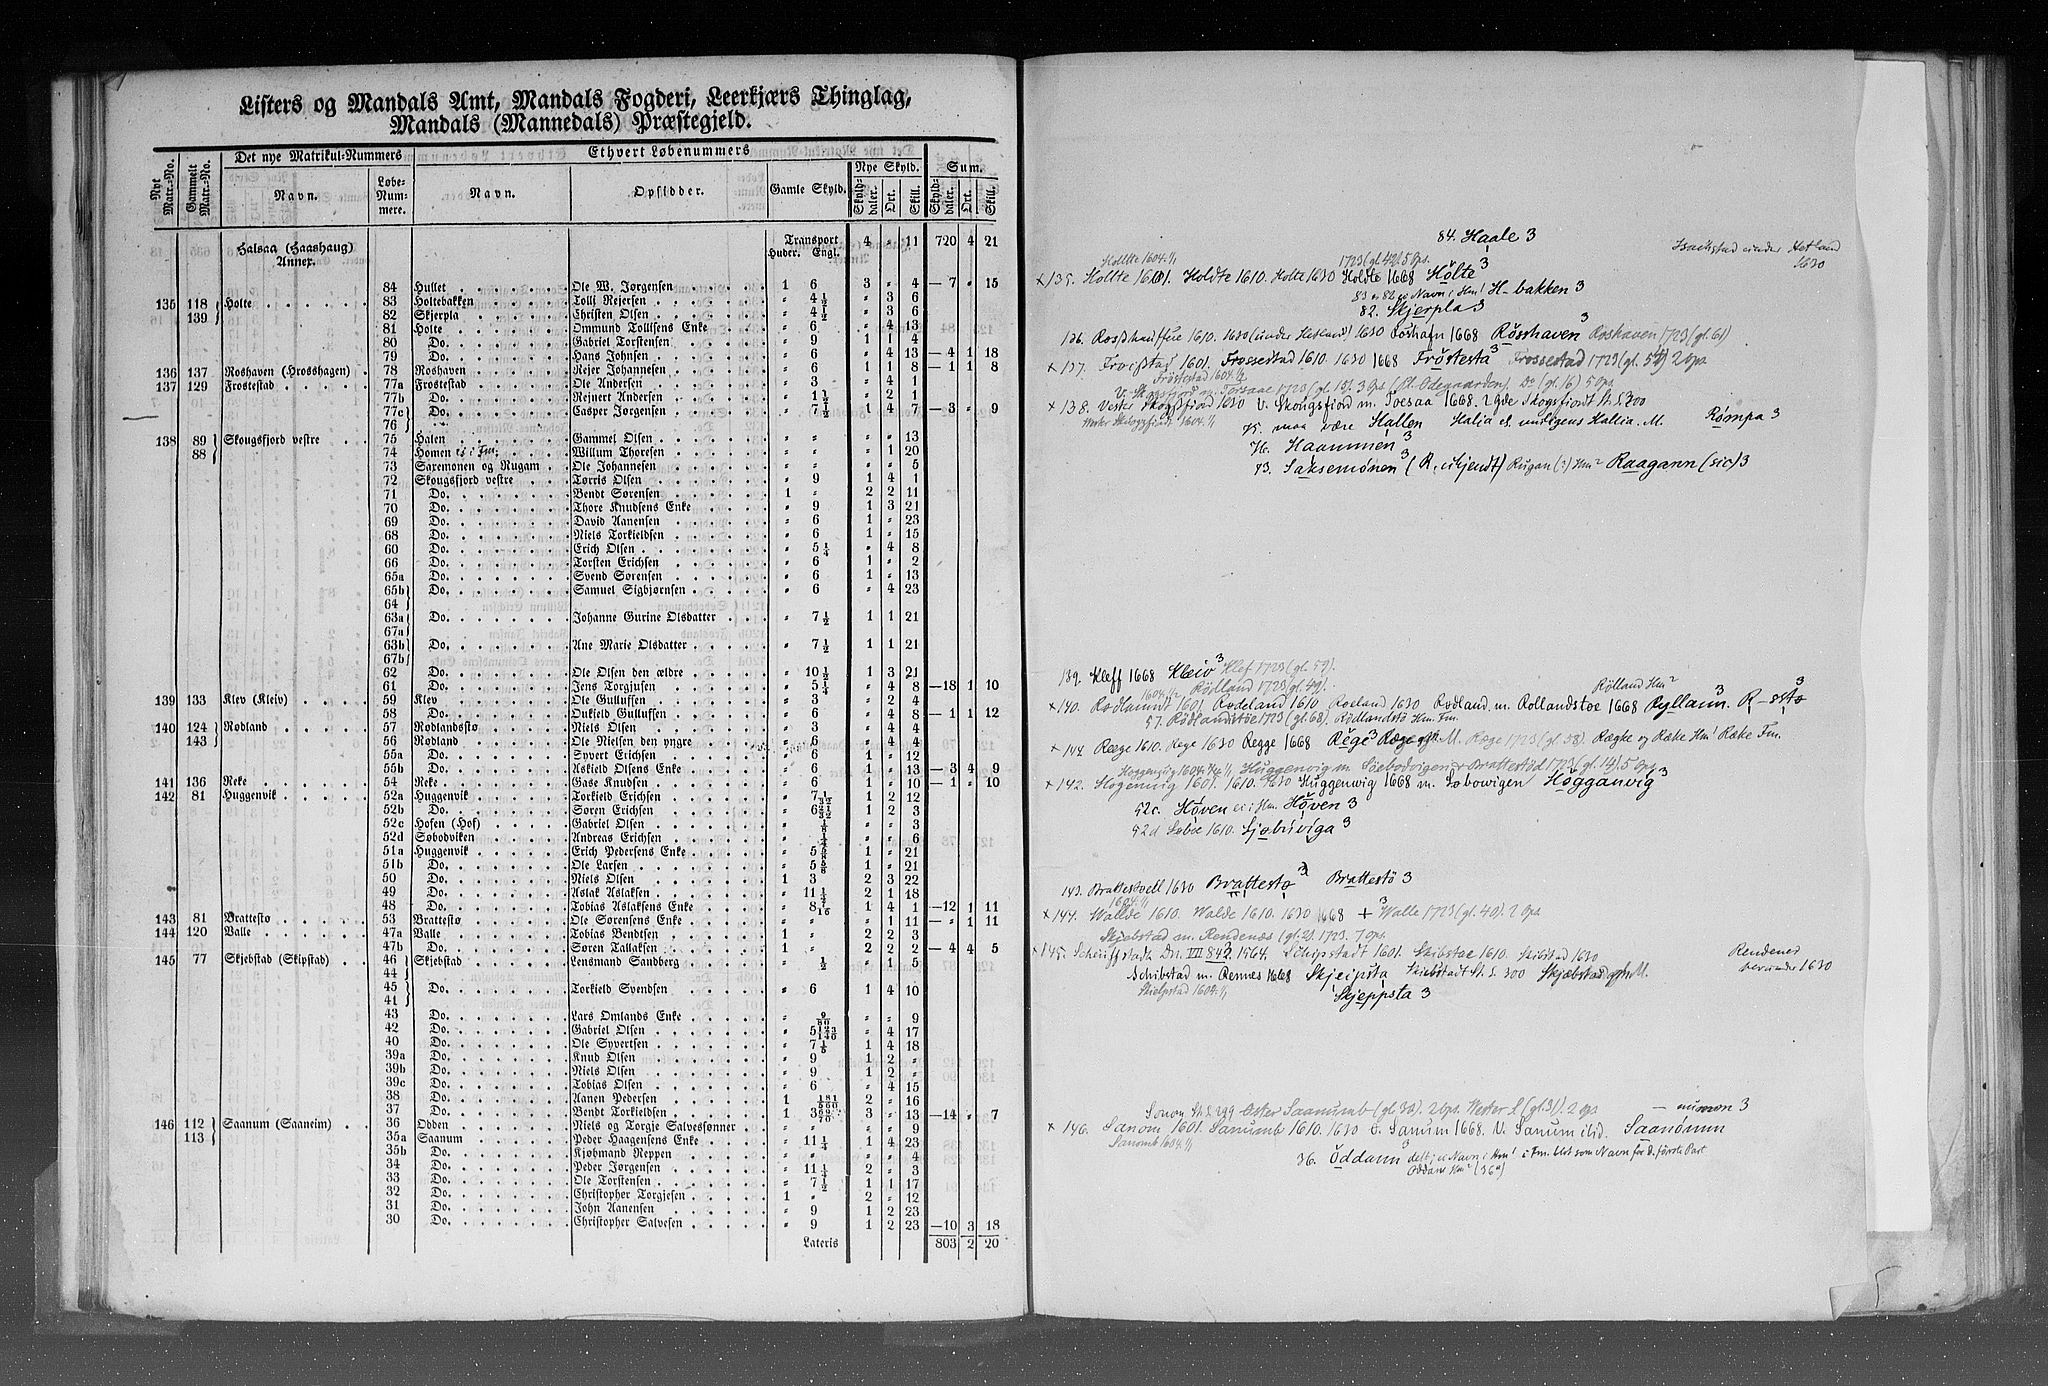 Listers og Mandals Amt, Mandals Fogderi, Leerkjærs Thinglag,
Mandals (Mannedals) Præstegjeld.
Nyt Matr.-No. Gammelt Matr.-No. Det nye Matrikul-Nummers Ethvert Løbenummers
Navn. Løbe-Nummere. Navn. Opsidder. Gamle Skyld. Nye Skyld. Sum.
Skylddaler. Ort. Skill. Skylddaler. Ort. Skill.
Halsaa (Haashaug) Annex. Transport 4 " 11 720 4 21
Huder. Engl.
84 Hullet Ole W. Jørgensen 1 6 3 " 4 —7 " 15
135 118 Holte 83 Holtebakken Tollj Rejersen " 4½ " 3 6
139 82 Skjerpla Christen Olsen " 4½ " 3 6
81 Holte Ommund Tollisens Enke " 6 " 4 13
80 Do. Gabriel Torstensen " 9 1 1 4
79 Do. Hans Johnsen " 6 " 4 13 —4 1 18
136 137 Roshaven (Hrosshagen) 78 Roshaven Rejer Johannesen " 6 1 1 8 —1 1 8
137 129 Frostestad 77a Frostestad Ole Andersen " 3 " 4 1
77b Do. Rejnert Andersen " 1½ " 2 1
77c Do. Casper Jørgensen " 7½ 1 4 7 —3 " 9
76
138 89 Skougsfjord vestre 75 Halen Gammel Olsen " " " " 13
88 74 Homen ei i Fm. Willum Thoresen " " " 1 20
73 Saxemonen og Rugam Ole Johannesen " " " " 5
72 Skougsfjord vestre Torris Olsen " 9 1 4 1
71 Do. Bendt Sørensen 1 " 2 2 11
70 Do. Thore Knudsens Enke " 9 1 3 21
69 Do. David Aanensen " 6 1 " 23
68 Do. Niels Torkieldsen " 6 1 " 15
60 Do. Erich Olsen " 5¼ " 4 8
66 Do. Torsten Erichsen " 6 1 " 2
65a Do. Svend Sørensen " 6 1 " 13
65b Do. Samuel Sigbjørnsen " 6 " 4 23
64
63a Do. Johanne Gurine Olsdatter " 7½ 1 1 21
67a
63b Do. Ane Marie Olsdatter " 7½ 1 1 21
67b
62 Do. Ole Olsen den ældre " 10½ 1 3 21
61 Do. Jens Torgjusen " 5¼ " 4 8 —18 1 10
139 133 Klev (Kleiv) 59 Klev Ole Gullufsen " 3 " 2 4
58 Do. Oukield Gullufsen " 6 " 4 8 —1 1 12
140 124 Rødland 57 Rødlandstø Niels Olsen " 3 " 4 4
143 56 Rødland Ole Nielsen den yngre " 6 " 4 4
55a Do. Syvert Erichsen " 6 1 " 12
55b Do. Askield Olsens Enke " 6 1 " 13 —3 4 9
141 136 Reke 54 Reke Gase Knudsen " 6 1 " 10 —1 " 10
142 81 Huggenvik 52a Huggenvik Torkield Erichsen " 7 1 2 12
52b Do. Søren Erichsen " 6 1 2 3
52c Hofen (Hof) Gabriel Olsen " ⅛ " " 3
52d Søbodviken Andreas Erichsen " ¼ " " 6
51a Huggenvik Erich Pedersens Enke " 5⅝ 1 " 21
51b Do. Ole Larsen " 5⅝ 1 " 21
50 Do. Niels Olsen 1 3 2 3 22
49 Do. Aslak Aslaksen " 11¼ 2 1 18
48 Do. Tobias Aslaksens Enke " 8 7/16 1 4 1 —12 1 11
143 81 Brattestø 53 Brattestø Ole Sørensens Enke " " " 1 11 —" 1 11
144 120 Valle 47a Valle Tobias Bendtsen 1 " 2 2 3
47b Do. Søren Tallaksen 1 " 2 2 2 —4 4 5
145 77 Skjebstad (Skipstad) 46 Skjebstad Lensmand Sandberg " ½ " 1 5
44
45 Do. Torkield Svendsen " 6 1 4 10
41
43 Do. Lars Omlands Enke " 9/80 " " 9
42 Do. Gabriel Olsen " 5 " 4 17
40 Do. Ole Syvertsen " 7⅕ 1 4 18
39a Do. Knud Olsen " 9 1 2 "
39b Do. Niels Olsen " 9 1 2 "
39c Do. Tobias Olsen " 6 " 4 15
38 Do. Aanen Pedersen 1 181/560 2 " 16
37 Do. Bendt Torkieldsen 1 3 69/70 3 " 13 —14 " 7
146 112 Saanum (Saaneim) 36 Odden Niels og Torgje Salvesønner " " " " 9
113 35a Saanum Peder Haagensens Enke " 11¼ 1 4 23
35b Do. Kjøbmand Reppen " " " " 4
34 Do. Peder Jørgensen " 11¼ 2 " 3
33 Do. Ole Torstensen " 7½ 1 1 17
32 Do. Christopher Torgjesen 1 " 2 " 12
31 Do. John Aanensen " 9 1 2 23
30 Do. Christopher Salvesen " 9 1 2 23 —10 3 18
Lateris 803 2 20
84. Haale 3
Isachstad under Hetland 1630
Hollte 1604. 1/1 1723 (gl. 42) 5 Gps.
× 135. Hollte 1601. Holdte 1610. Holte 1630 Holdte 1668 Hölte 3
83 er 82 os Navn i Hm1 H-bakken 3
82. Skjerpla 3
136. Rosshauffue 1610. 1630 (under Hetland) 1630 Roshafn 1668 Røsshaven 3 Roshaven 1723 (gl. 61)
× 137. Froisstad 1601. Frossestad 1610. 1630 1668 Fröstestá 3 Frossestad 1723 (gl. 54) 2 Gps
Fröstestad 1604. 1/2
V. Skogsfjord og Torsaae 1723 (gl. 15). 3 Gps (Pl. Ødegaarden). Do (gl. 16) 5 Gps.
× 138. Vester Skogsfiord 1630 V. Skougsfjord m. Toesaa 1668. 2 Gde Skogsfiordt St. S. 300
Vester Skuggfiord 1604. 1/1 75. maa være Hallen Halia el. undigens Hallia. M. Rømpa 3
74. Haammen 3
73. Saksemønen 3 (R. ukjendt) Rugan (?) Hm2 Raagann (sic) 3
139. Kleff 1668 Kleiv 3 Klef 1723 (gl. 59).
1604. 1/2 Rödland 1723 (gl. 49). Rölland Hm2
× 140. Rodlanndt 1601. Rodeland 1610 Roeland 1630 Rodland. m. Rollandstoe 1668 Ryllann 3. R-stø 3
57. Rödlandstöe 1723 (gl. 68). Rødlandstö Hm. Fm.
× 141. Ræge 1610. Rege 1630 Regge 1668 Rêge 3 Ræge gsh M. Ræge 1723 (gl. 58). Rægke og Ræke Hm1 Ræke Fm.
Hoggenuig 1604. 1/1 Huggenvig m. Söebodvigen & Brattestöd 1723 (gl. 14). 5 Gps
× 142. Hogenuig 1601. 1610. 1630 Huggenwig 1668 m. Søbowigen Högganvig 3
52c. Höven ei i Hm. Höven 3
52d Søboe 1610. Sjøbuviga 3
143. Brattestuell 1630 Brattestø 3 Brattestö 3
1604. 1/1
× 144. Wallde 1610. Walde 1610. 1630 1668 + 3 Walle 1723 (gl. 40). 2 Gps
Skjebstad m. Rendenæs (gl. 2). 1723. 7 Gps.
× 145. Scheiffstadt Dn. VII 842. 1564. Schipstadt 1601. Skibstoe 1610. Skibstad 1630 Rendenes
Schibstad m. Rennes 1668 Skjeipsta Skiebstadt St. S. 300 Skjæbstad gsh M. 1630
Skielpstad 1604. 1/1 Skjeppsta 3
Sonom St. S 299 Oster Saanumb (gl. 30). 2 Gps. Wester S (gl. 31). 2 Gps — 3
× 146. Sanom 1601. Sanumb 1610. 1630 Ö. Sanum 1668. V. Sanum ibid. Saanømm
Sanomb 1604. 1/1
36. Öddann 3 delt; ei Navn i Hm1 i Fm. blot som Navn for d. første Part
Oddane Hm2 (36a)
5